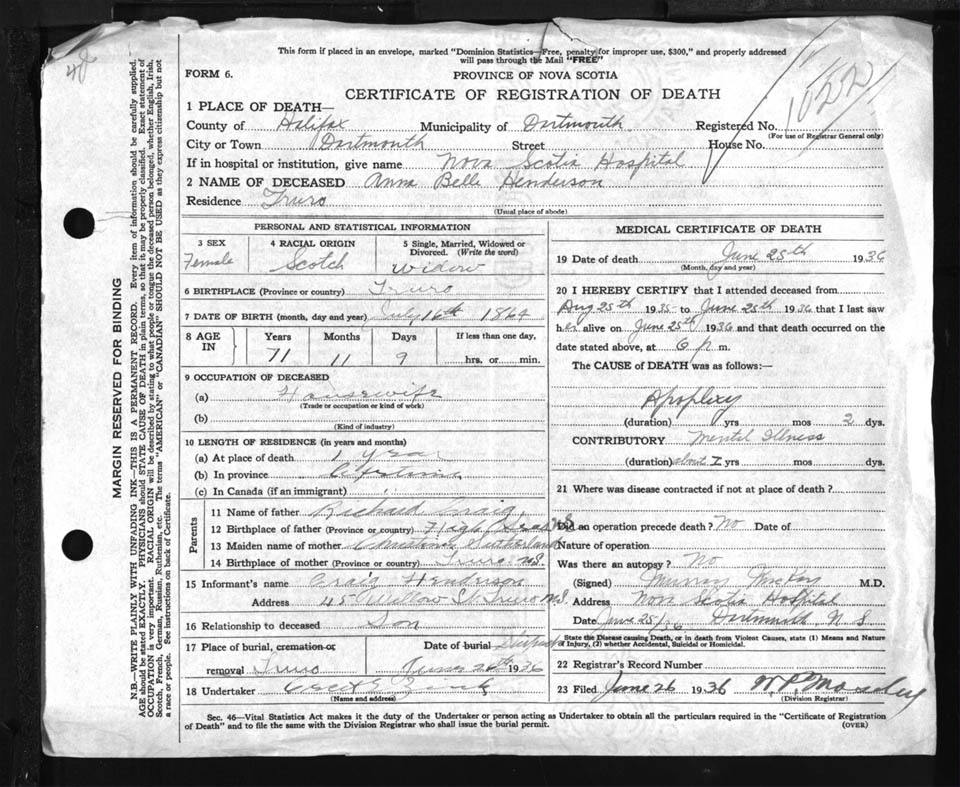 This form if placed in an envelope, marked "Dominion Statistics—Free, penalty for improper use, $300," and properly addressed
will pass through the Mail "FREE"
FORM 6.
PROVINCE OF NOVA SCOTIA
CERTIFICATE OF REGISTRATION OF DEATH
1022
1 PLACE OF DEATH—
County of Halifax Municipality of Dartmouth Registered No.
(For use of Registrar General only)
City or Town Dartmouth Street House No.
If in hospital or institution, give name Nova Scotia Hospital
2 NAME OF DECEASED Anna Belle Henderson
Residence Truro
(Usual place of abode)
MARGIN RESERVED FOR BINDING
N.B.—WRITE PLAINLY WITH UNFADING INK—THIS IS A PERMANENT RECORD. Every item of information should be carefully supplied.
AGE should be stated EXACTLY. PHYSICIANS should STATE CAUSE OF DEATH in plain terms, so that it may be properly classified. Exact statement of
OCCUPATION is very important. RACIAL ORIGIN will be described by stating to what people or tongue the deceased person belonged, whether English, Irish,
Scotch, French, German, Russian, Ruthenian, etc. The terms "AMERICAN" or "CANADIAN" SHOULD NOT BE USED as they express citizenship but not
a race or people. See instructions on back of Certificate.
PERSONAL AND STATISTICAL INFORMATION
3 SEX 4 RACIAL ORIGIN 5 Single, Married, Widowed or
Divorced. (Write the word)
Female Scotch Widow
6 BIRTHPLACE (Province or country) Truro
7 DATE OF BIRTH (month, day and year) July 16th 1864
8 AGE
IN
Years Months Days If less than one day,
71 11 9 hrs. or min.
9 OCCUPATION OF DECEASED
(a) Housewife
(Trade or occupation or kind of work)
(b)
(Kind of industry)
10 LENGTH OF RESIDENCE (in years and months)
(a) At place of death 1 year
(b) In province
(c) In Canada (if an immigrant)
Parents
11 Name of father Richard Craig
12 Birthplace of father (Province or country)
13 Maiden name of mother Christina Sutherland
14 Birthplace of mother (Province or country) Truro N.S.
15 Informant's name Craig Henderson
Address 45 Willow St. Truro N.S.
16 Relationship to deceased Son
17 Place of burial, cremation or
removal Truro
Date of burial
June 26th 1936
18 Undertaker
(Name and address)
MEDICAL CERTIFICATE OF DEATH
19 Date of death June 25th 1936
(Month, day and year)
20 I HEREBY CERTIFY that I attended deceased from
Aug 25th 1935 to June 25th 1936 that I last saw
her alive on June 25th 1936 and that death occurred on the
date stated above, at 6 p m.
The CAUSE of DEATH was as follows:—
Apoplexy
(duration) yrs mos 2 dys.
CONTRIBUTORY Mental Illness
(duration) about yrs mos dys.
21 Where was disease contracted if not at place of death?
Did an operation precede death? No Date of
Nature of operation
Was there an autopsy? No
(Signed) Murray McKay M.D.
Address Nova Scotia Hospital
Date June 25/36 Dartmouth N.S.
State the Disease causing Death, or in death from Violent Causes, state (1) Means and Nature
of Injury, (2) whether Accidental, Suicidal or Homicidal.
22 Registrar's Record Number
23 Filed June 26 1936
(Division Registrar)
Sec. 46—Vital Statistics Act makes it the duty of the Undertaker or person acting as Undertaker to obtain all the particulars required in the "Certificate of Registration
of Death" and to file the same with the Division Registrar who shall issue the burial permit. (OVER)